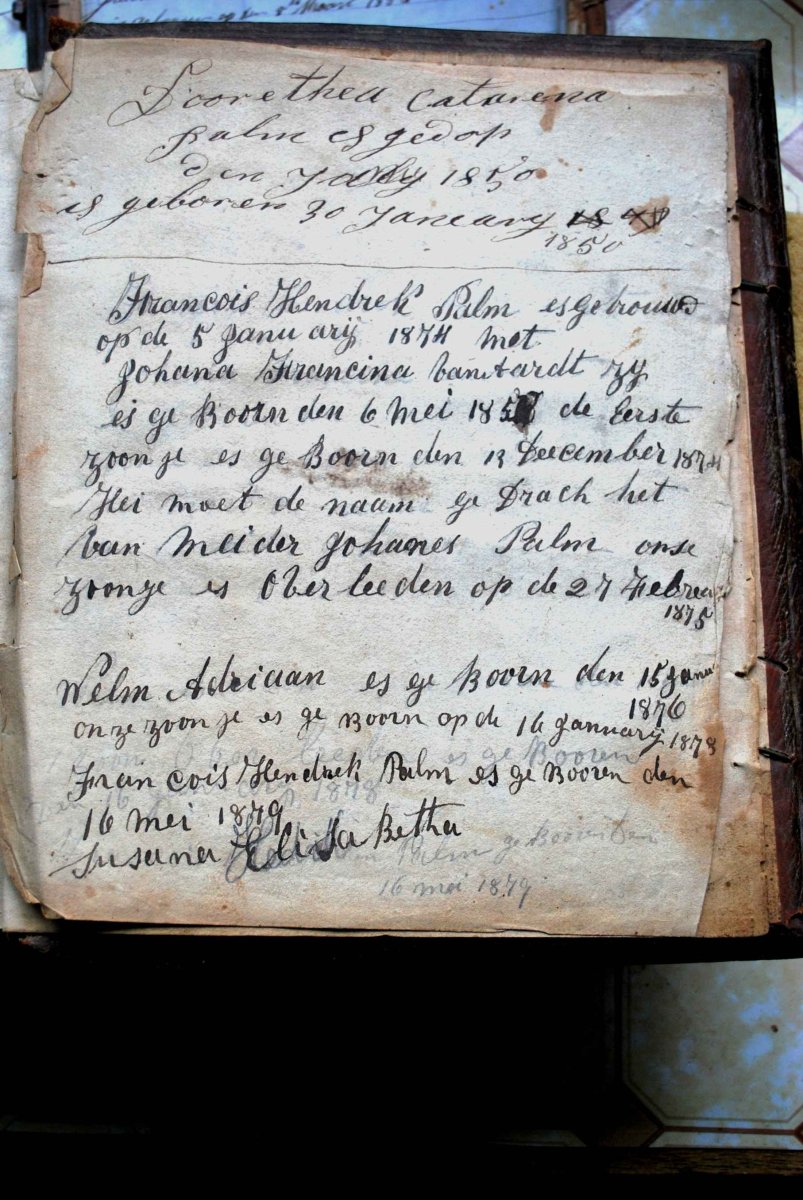 Doorethea Catarena
palm es gedop
den July 1850
es geboren 30 January 18 40
1850
Francois Hendrek Palm es getrouwd
op de 5 Januarij 1874 met
Johana Francina van Aardt zy
es ge Boorn den 6 Mei 185 de Eerste
zoon je es ge Boorn den 12 Deecember 1874
Hei moet de naam ge Drach het
van Meider Johanes Palm onse
zoonje es Over leeden op de 27 Febreu
1875
Welm Adriaan es ge Boorn den 15 Janu
1876
onze zoon je es ge Boorn op de 16 January 1878
es ge Booren
Francois Hendrek Palm es ge Booren den
1878
16 mei 1879
Susana Elisa Betha
Palm ge Booren den
16 mei 1879